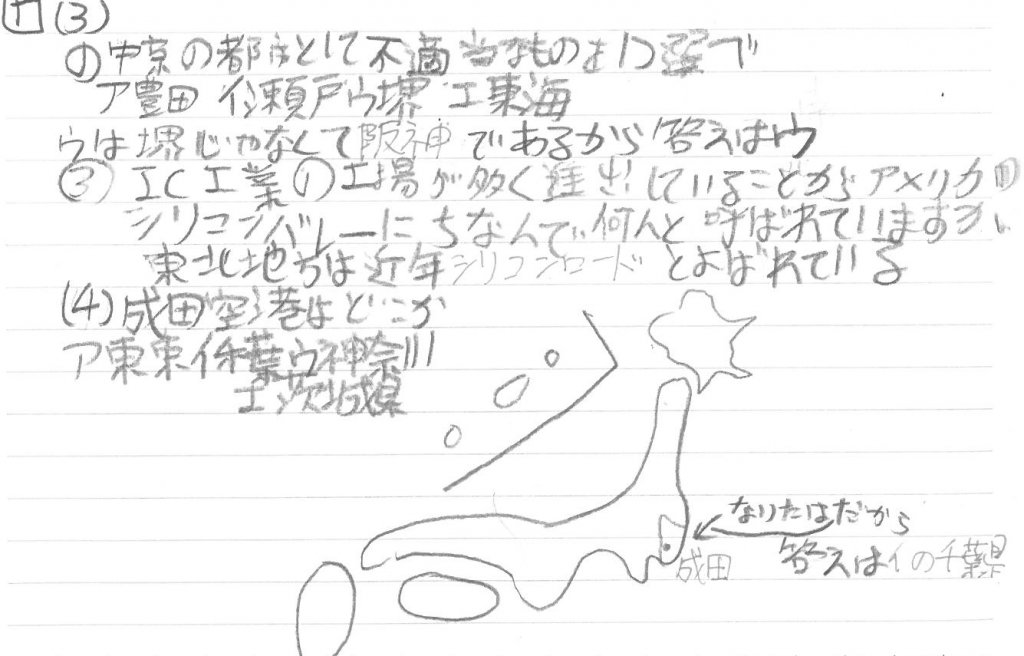 1 (3)
の中京の都市として不適当なものを1つ選べ
ア豊田 イ瀬戸ウ堺 エ東海
ウは堺じゃなくて阪神であるから答えはウ
③ IC工業の工場が多く進出していることからアメリカの
シリコンバレーにちなんで何んと呼ばれていますか。
東北地方は近年シリコンロードとよばれている
(4)成田空港はどこか
ア東京イ千葉ウ神奈川
エ茨城県
なりたはだから
成田 答えはイの千葉県